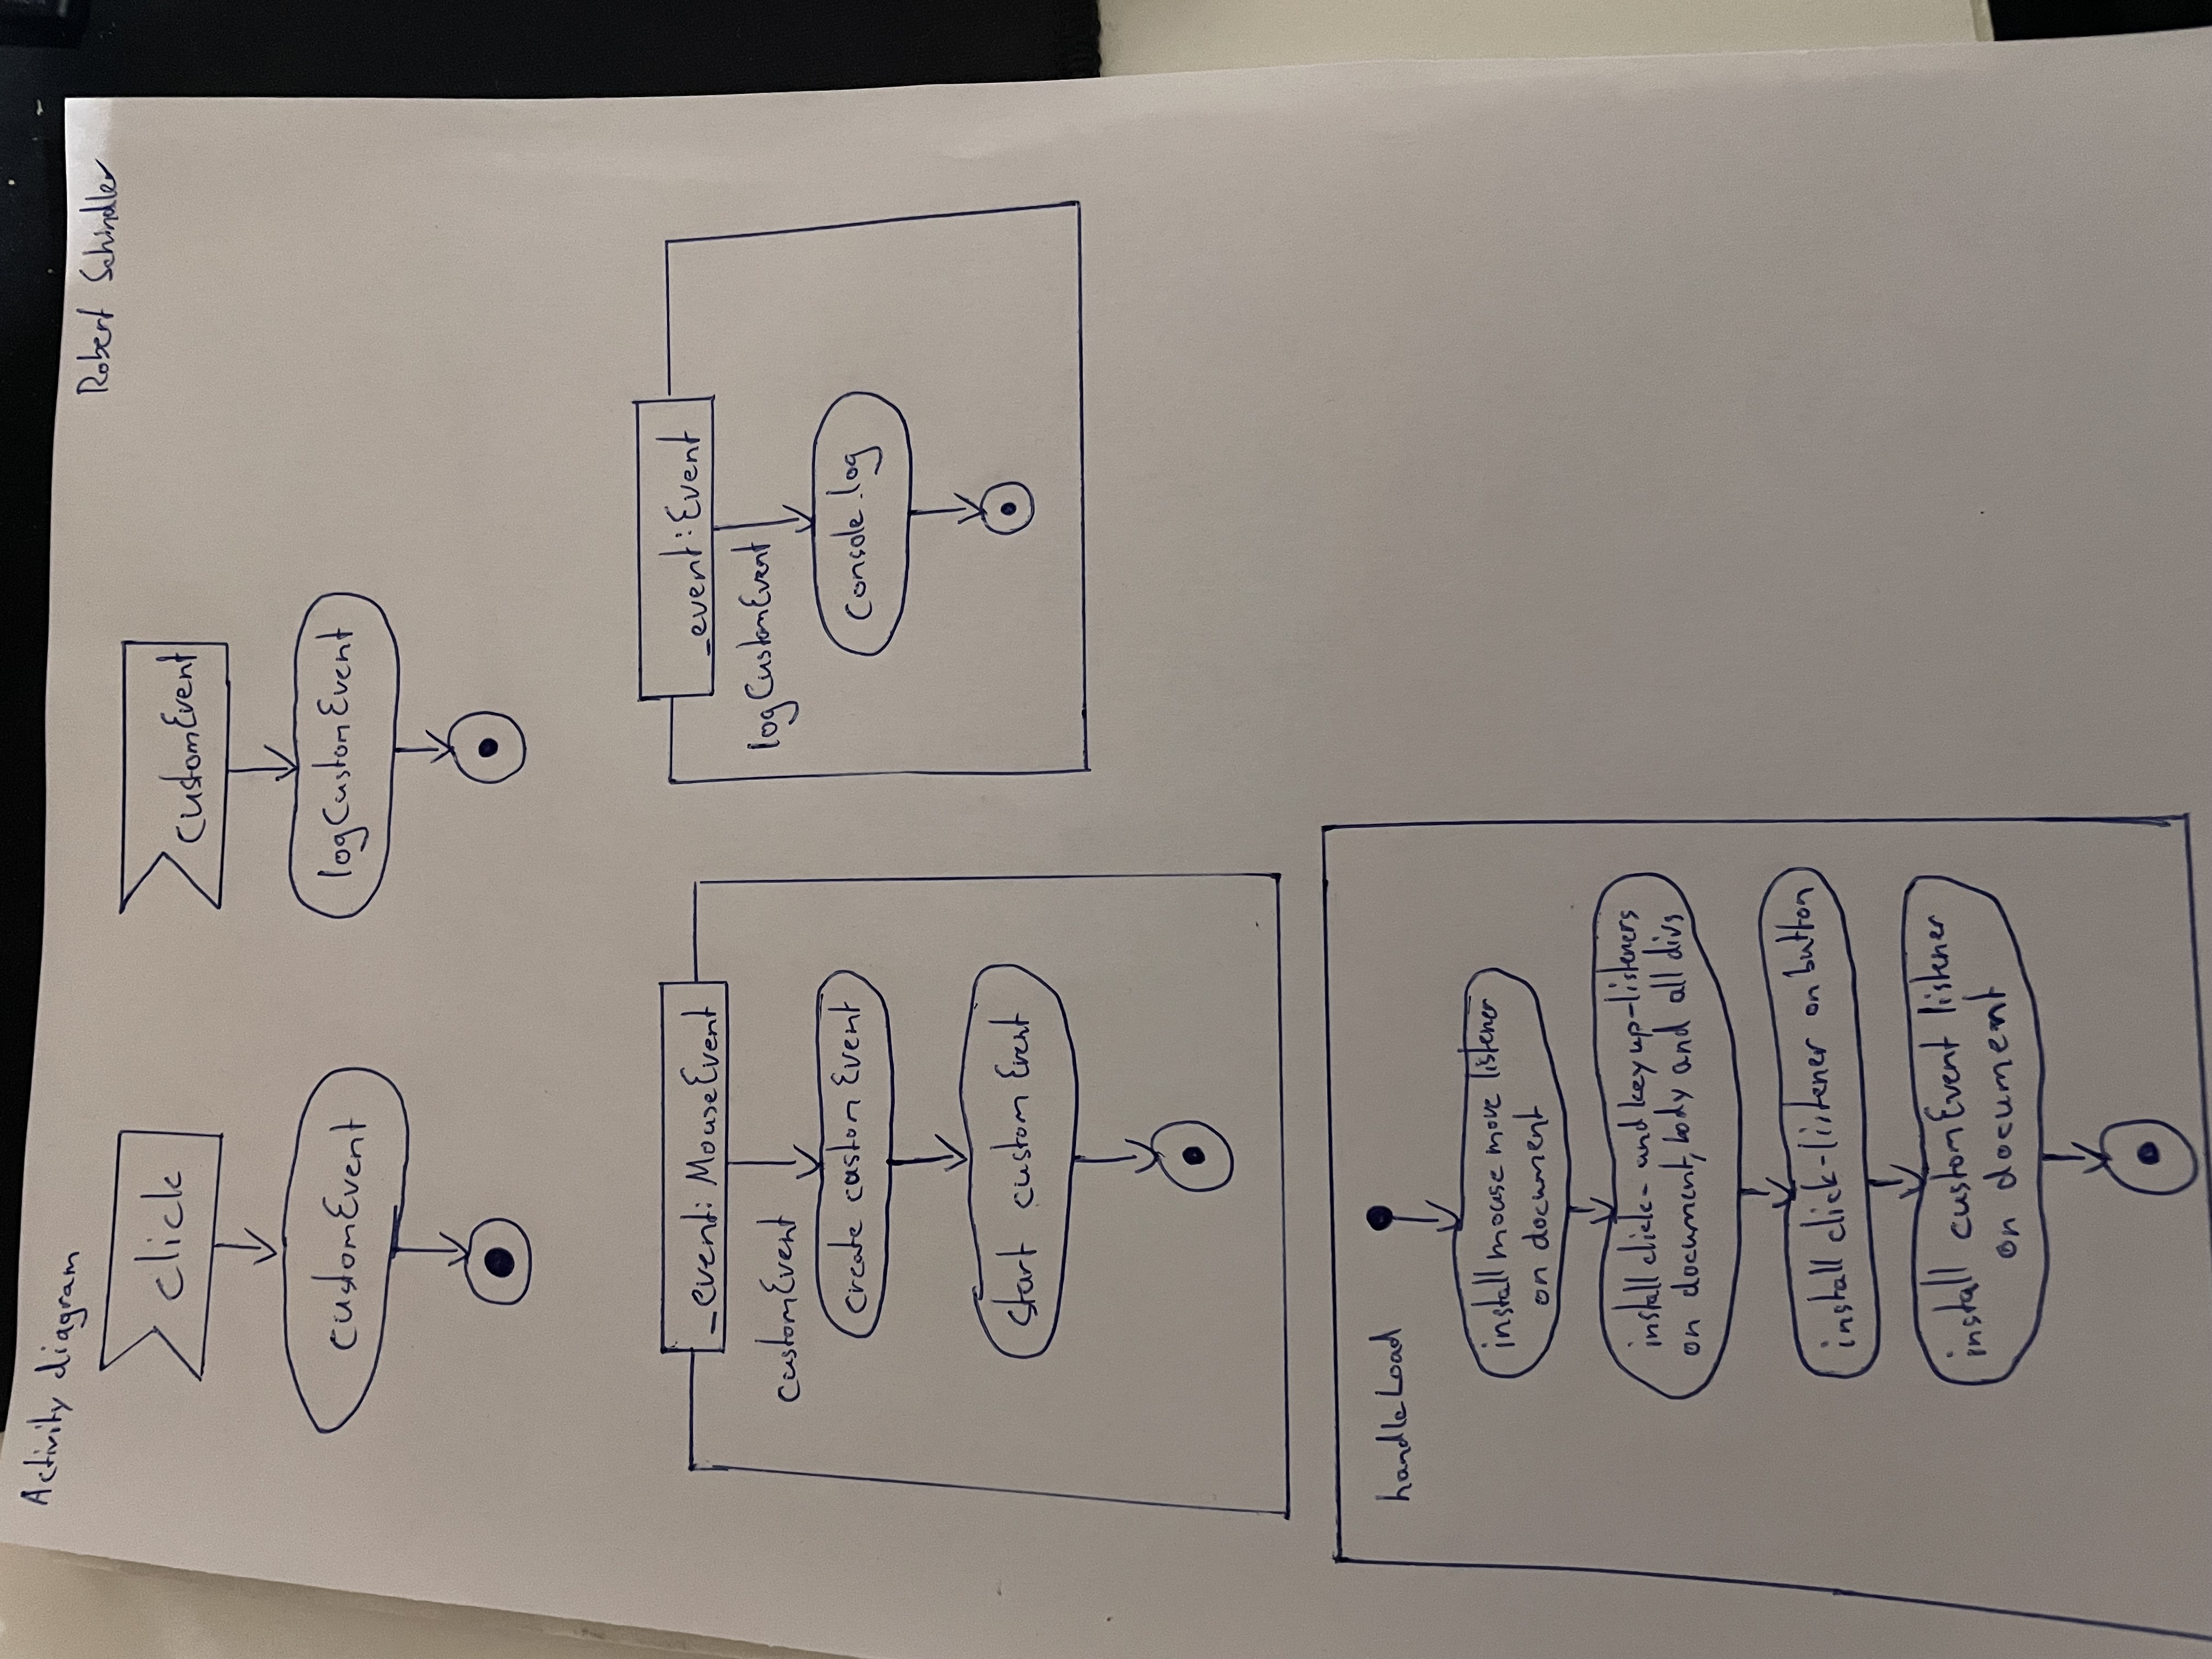 Activity diagram
Robert Schindler
click
customEvent
customEvent
logCustomEvent
_event: MouseEvent
customEvent
create castom Event
start custom Event
_event: Event
logCustomEvent
console.log
handleLoad
install mouse move listener
on document
install click- and keyup-listeners
on document, body and all divs
install click-listener on button
install customEvent listener
on document